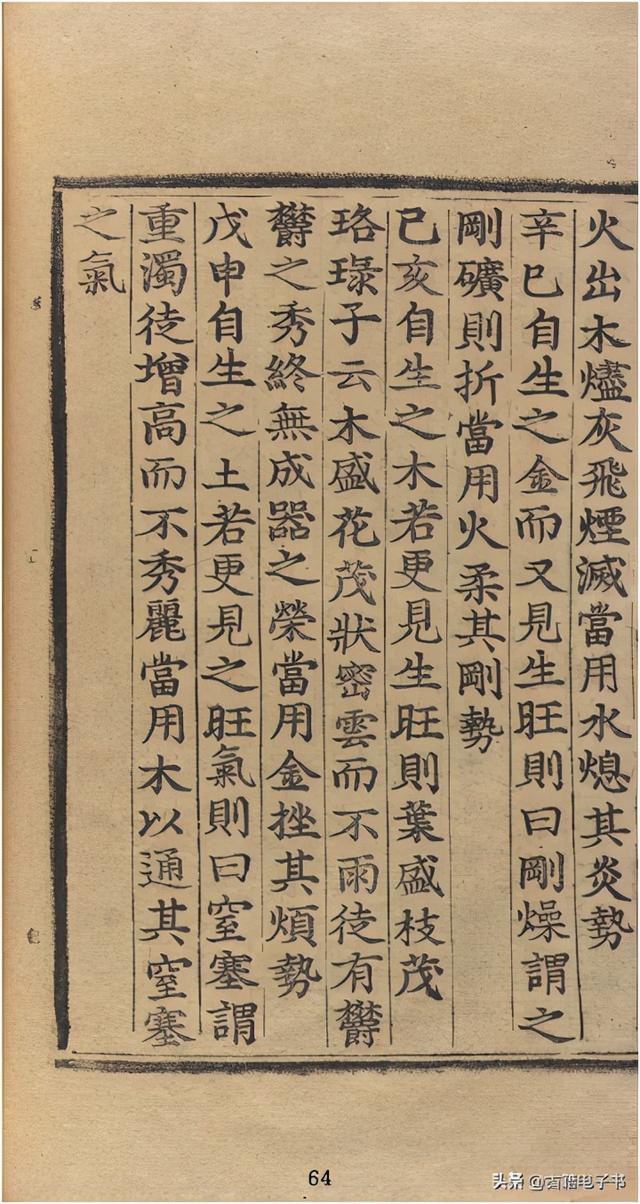 火出木燼灰飛煙滅當用水熄其炎勢
辛巳自生之金而又見生旺則曰剛燥謂之
剛礦則折當用火柔其剛勢
己亥自生之木若更見生旺則葉盛枝茂
珞琭子云木盛花茂狀密雲而不雨徒有欝
欝之秀終無成器之榮當用金挫其煩勢
戊申自生之土若更見之旺氣則曰窒塞謂
重濁徒增高而不秀麗當用木以通其窒塞
之氣
64
头条 @古籍电子书